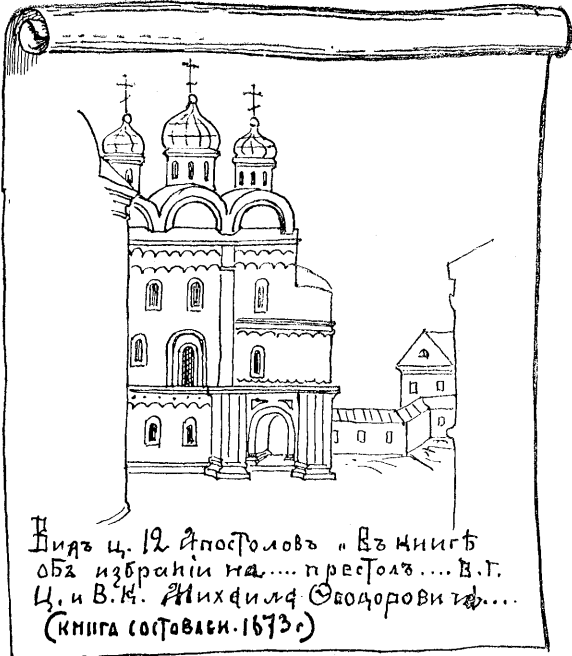 Видъ ц. 12 Апостоловъ „ Въ книгѣ
объ избраніи на.... престолъ.... В. Г.
Ц. и В. К. Михаила Ѳеодоровича....
(книга составлен. 1673 г)